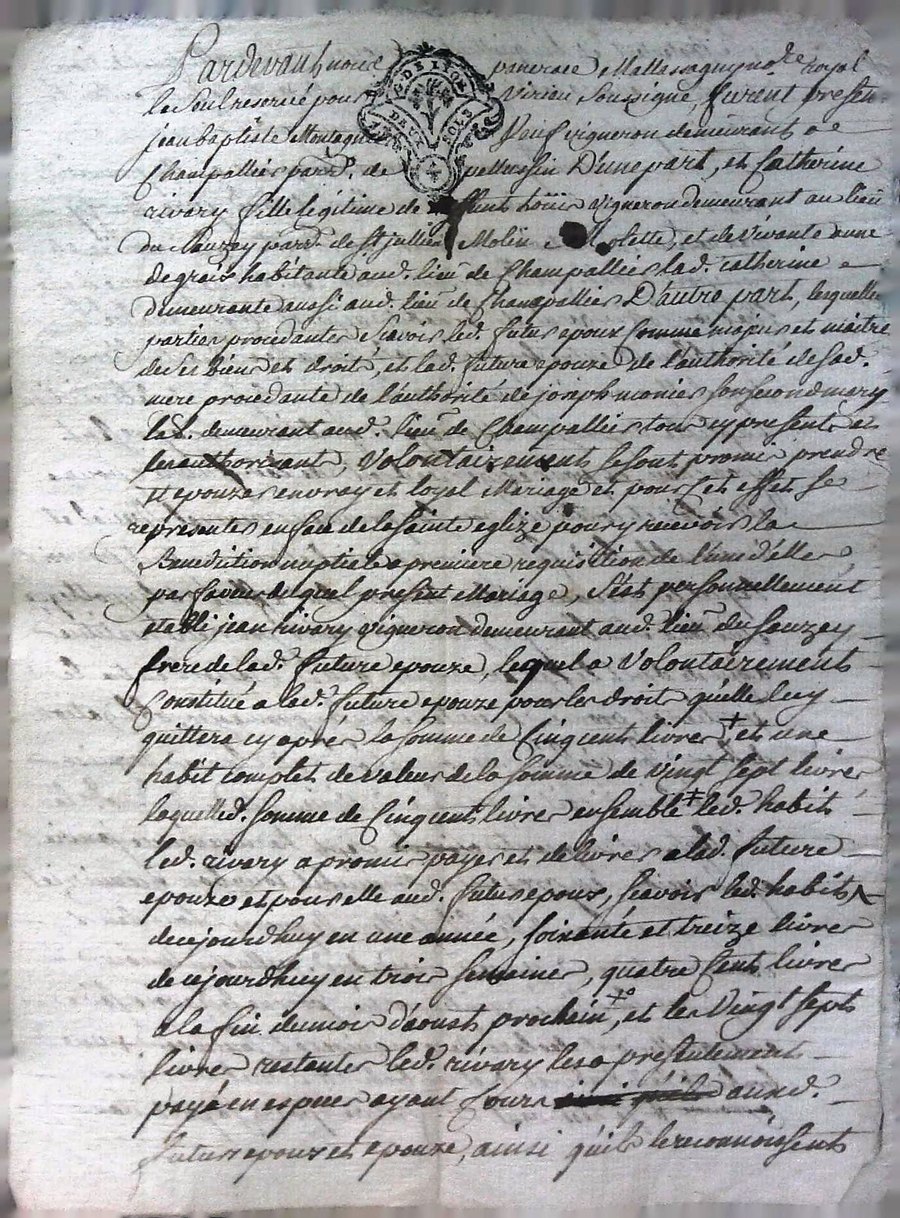 Pardevant nous pancrace Mallassagny no.re royal
la Soulresorcié pour Virieu Soussigné, furent present
jean baptiste Montagn Veuf vigneron demeurant a
Champallier parr.e de pellussin D'une part, et Catherine
rivory fille legitime de vigneron demeurant au lieu
du Sauzey parr.e de St jullien Molin Molette, et de vivante
habitante aud. lieu de Champallier lad. Catherine
demeurante aussi aud. lieu de Champallier D'autre part, lesquelles
parties procedantes Scavoir led. futur epoux comme majeur et maitre
de Ses bien et droits, et lad. future epouze de l'authorité de sad.
mere procedante de l'authorité de joseph monier son second mary
led. demeurant aud. lieu de Champallier tous cy presents et
les authorisant, Volontairement se sont promis prendre
et epouzer en vray et loyal Mariage et pour cet effet se
representer en face de la Sainte eglize pour y recevoir la
Benediction nuptiele a premiere requisition de l'un d'elles
par faveur duquel present Mariage, S'est personnellement
etabli jean rivory vigneron demeurant aud. lieu du Sauzey
frere de lad. future epouze, lequel a Volontairement
Constitué a lad. future epouze pour les droit qu'elle luy
quittera cy aprés la somme de Cinq cents livres + et une
habit complet de valeur de la somme de vingt sept livres
laquelled. somme de Cinq cents livres ensemble ‡ led. habit
led. rivory a promis payer et delivrer a lad. future
epouze et pour elle aud. futur epoux, Scavoir led. habit
de ce jourdhuy en une année, soixante et treize livres
de ce jourdhuy en trois semaines, quatre Cents livres
a la fin du mois d'aoust prochain, et les Vingt Sept
livres restantes led. rivory les a presentement
payé en especes ayant Cours auxd.
futurs epoux et epouze, ainsi qu'ils le reconnoissent